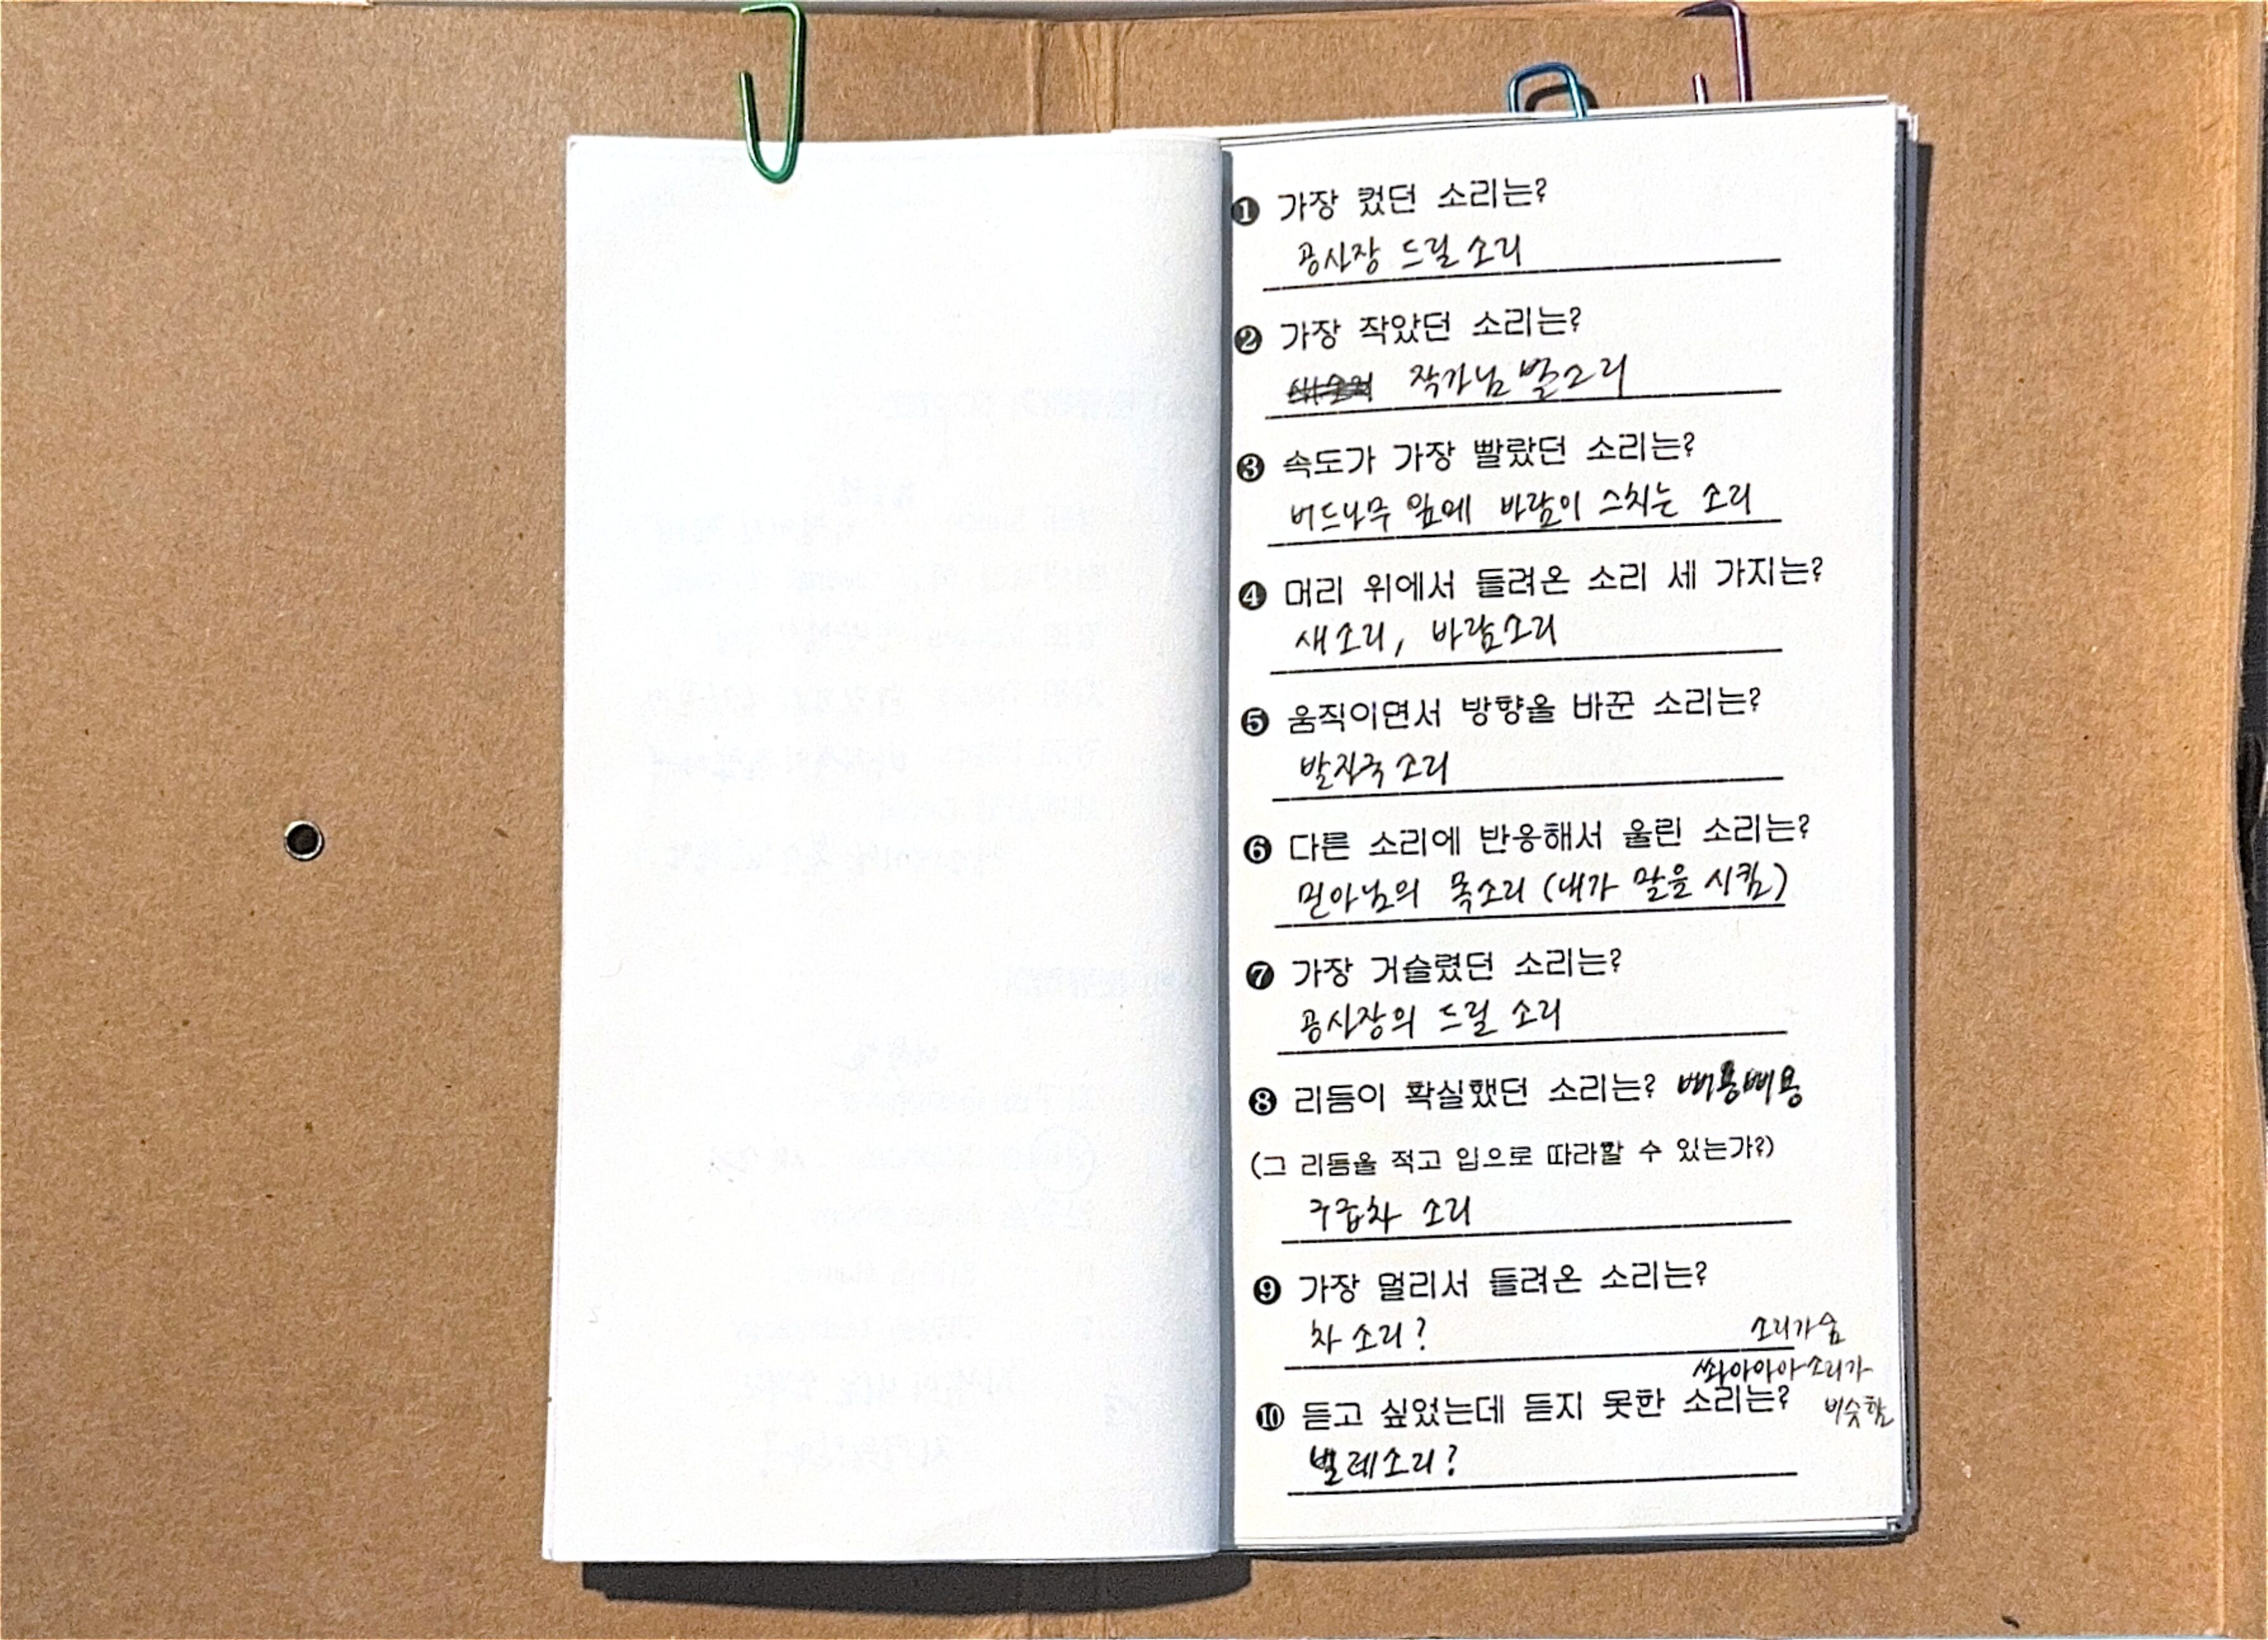 ❶ 가장 컸던 소리는?
공사장 드릴 소리
❷ 가장 작았던 소리는?
작가님 발소리
❸ 속도가 가장 빨랐던 소리는?
버드나무 잎에 바람이 스치는 소리
❹ 머리 위에서 들려온 소리 세 가지는?
새소리, 바람소리
❺ 움직이면서 방향을 바꾼 소리는?
발자국 소리
❻ 다른 소리에 반응해서 울린 소리는?
민아님의 목소리 (내가 말을 시킴)
❼ 가장 거슬렸던 소리는?
공사장의 드릴 소리
❽ 리듬이 확실했던 소리는? 삐용삐용
(그 리듬을 적고 입으로 따라할 수 있는가?)
구급차 소리
❾ 가장 멀리서 들려온 소리는?
차 소리?
소리가숨
쏴아아아 소리가
비슷함
❿ 듣고 싶었는데 듣지 못한 소리는?
벌레소리?